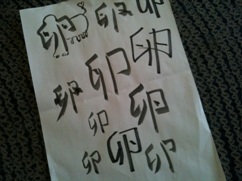 卵 卵 卵
卵 卵 卵
卵 卵
卵 卵 卵